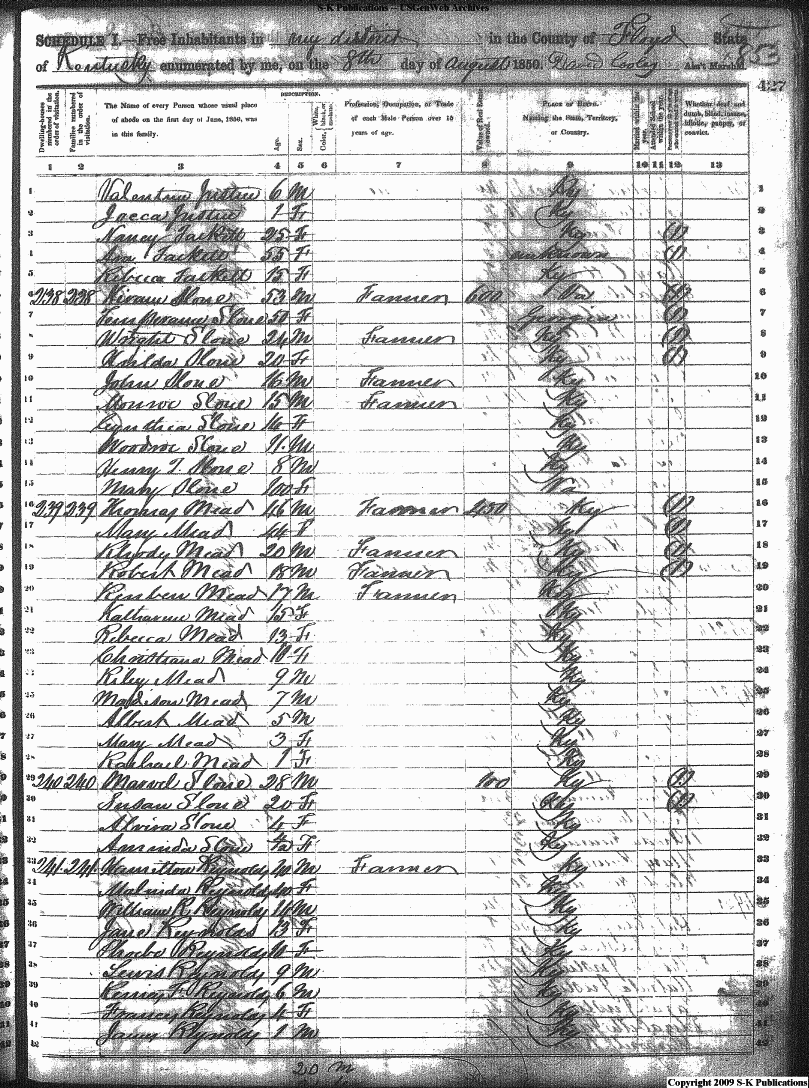 S-K Publications - USGenWeb Archives
SCHEDULE I.—Free Inhabitants in my district in the County of Floyd State
of Kentucky enumerated by me, on the 8th day of August 1850. Ass't Marshal
853
427
DESCRIPTION.
Dwelling-houses numbered in the order of visitation.
Families numbered in the order of visitation.
The Name of every Person whose usual place of abode on the first day of June, 1850, was in this family.
Age.
Sex.
Profession, Occupation, or Trade of each Male Person over 15 years of age.
Value of Real Estate owned.
PLACE OF BIRTH. Naming the State, Territory, or Country.
Married within the year.
Attended School within the year.
Whether deaf and dumb, blind, insane, idiotic, pauper, or convict.
1 2 3 4 5 6 7 8 9 10 11 12 13
1 Valentine Justice 6 M Ky 1
2 Justice 1 F Ky 2
3 Nancy Tackett 25 F Ky (1) 3
4 Tackett 55 F unknown (1) 4
5 Rebecca Tackett 15 F Ky 5
6 238 238 Hiram Slone 53 M Farmer 600 Va (1) 6
7 Temperance Slone 50 F Georgia (1) 7
8 Wright Slone 24 M Farmer Ky (1) 8
9 Slone 20 F Ky (1) 9
10 John Slone 16 M Farmer Ky 10
11 Monroe Slone 15 M Farmer Ky 11
12 Cynthia Slone 14 F Ky 12
13 Slone 11 M Ky 13
14 Henry T. Slone 8 M Ky 14
15 Mary Slone 100 F Va 15
16 239 239 Thomas Mead 46 M Farmer 450 Ky (1) 16
17 Mary Mead 44 F Ky (1) 17
18 Rhody Mead 20 M Farmer Ky (1) 18
19 Robert Mead 18 M Farmer Ky (1) 19
20 Reuben Mead 17 M Farmer Ky 20
21 Katharine Mead 15 F Ky 21
22 Rebecca Mead 13 F Ky 22
23 Christiana Mead 10 F Ky 23
24 Riley Mead 9 M Ky 24
25 Madison Mead 7 M Ky 25
26 Albert Mead 5 M Ky 26
27 Mary Mead 3 F Ky 27
28 Rachael Mead 1 F Ky 28
29 240 240 Slone 28 M Ky (1) 29
30 Susan Slone 20 F Ky (1) 30
31 Alvira Slone 4 F Ky 31
32 Aminda Slone F Ky 32
33 241 241 Hamilton Reynolds 40 M Farmer Ky 33
34 Malinda Reynolds 40 F Ky 34
35 William R. Reynolds M Ky 35
36 Jane Reynolds 13 F Ky 36
37 Phoebe Reynolds 10 F Ky 37
38 Lewis Reynolds 9 M Ky 38
39 Reynolds 6 M Ky 39
40 Frances Reynolds 4 F Ky 40
41 James Reynolds 1 M Ky 41
42 42
20 M
Copyright 2009 S-K Publications